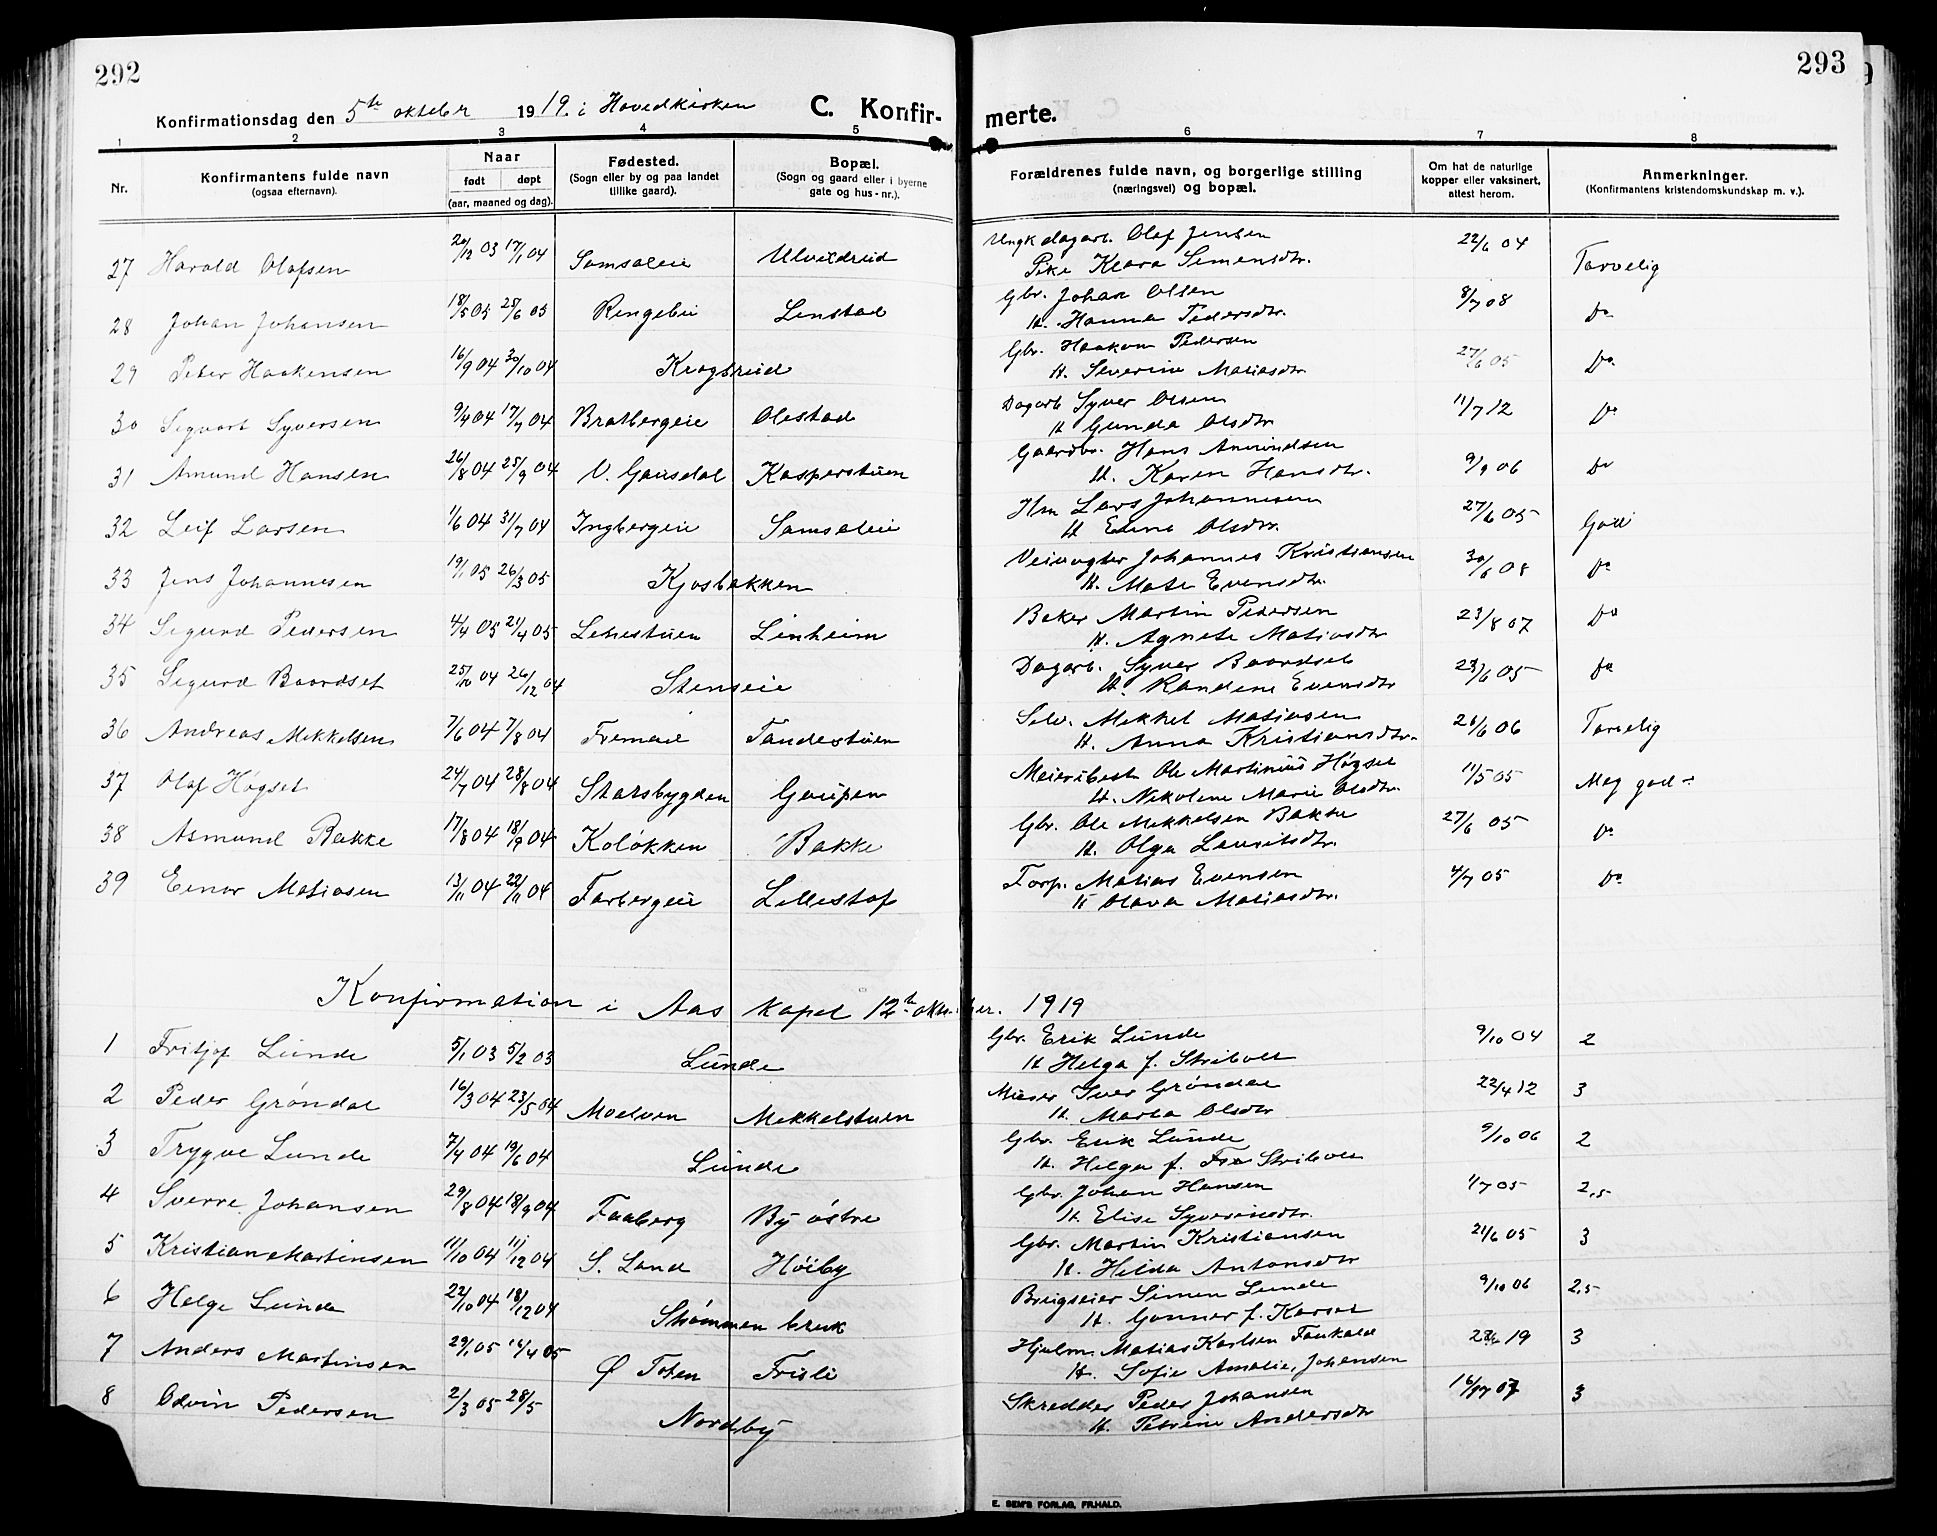 292
293
Konfirmationsdag den 5te oktober 1919. i Hovedkirken
C. Konfir-
merte.
1 2 3 4 5 6 7 8
Nr.
Konfirmantens fulde navn (ogsaa efternavn).
Naar født døpt (aar, maaned og dag).
Fødested. (Sogn eller by og paa landet tillike gaard).
Bopæl. (Sogn og gaard eller i byerne gate og hus-nr.).
Forældrenes fulde navn, og borgerlige stilling (næringsvei) og bopæl.
Om hat de naturlige kopper eller vaksinert, attest herom.
Anmerkninger. (Konfirmantens kristendomskundskap m. v.).
27 Harald Olafsen 20/12 03 17/1 04 Samsaleie Ungk dagarb. Olaf Jensen 22/6 04 Tarvelig
Pike Klara Simensdtr.
28 Johan Johansen 18/5 05 25/6 05 Ringebu Linstad Gbr. Johan Olsen 8/7 08 Do
H. Hanna Pedersdtr.
29 Peter Haakensen 16/9 04 30/10 04 Kragsreid Gbr. Haakon Pedersen 27/6 05 Do
H. Severine Matiasdtr.
30 Sigvart Syversen 9/4 04 17/7 04 Bratbergeie Olestad Dagarb Syver Olsen 11/7 12 Do
H Gunda Olsdtr.
31 Amund Hansen 26/8 04 25/9 04 V. Gausdal Kasperstuen Gaardbr. Hans Amundsen 9/9 06 Do
H. Karen Hansdtr.
32 Leif Larsen 1/6 04 31/7 04 Ingbergeie Samsaleie Hm Lars Johannesen 27/6 05 God
H Olsdtr.
33 Jens Johannesen 19/1 05 26/3 05 Kjosbakken Veivogter Johannes Kristiansen 30/6 08 Do
H. Mate Evensdtr.
34 Sigurd Pedersen 4/4 05 21/4 05 Linheim Baker Martin Pedersen 23/8 07 Do
H. Agnete Matiasdtr
35 Sigurd Baardset 25/10 04 26/12 04 Stenseie Dagarb. Syver Baardset 23/6 05 Do
H. Randine Evensdtr
36 Andreas Mikkelsen 7/6 04 7/8 04 Tandestuen Selv. Mikkel Matiasen 21/6 06 Tarvelig
H. Anna Kristiansdtr.
37 Olaf Høgset 24/7 04 28/8 04 Starsbygden Gaupen Meieribest Ole Martinius Høgset 11/5 05 Meg god
H. Nikoline Marie Olsdtr.
38 Asmund Bakke 17/8 04 18/9 04 Koløkken Bakke Gbr. Ole Mikkelsen Bakke 27/6 05 Do
H. Olga Lauritsdtr.
39 Einar Matiasen 13/11 04 22/11 04 Farbergeie Lillestaf Forp. Matias Evensen 4/7 05 Do
H Olava Matiasdtr.
Konfirmation i Aas kapel 12te oktober. 1919
1 Fritjof Lunde 5/1 03 5/2 03 Lunde Gbr. Erik Lunde 9/10 04 2
H Helga f. Stribolt
2 Peder Grøndal 16/3 04 23/5 04 Moelven Mikkelstuen Iver Grøndal 22/4 12 3
H. Marta Olsdtr
3 Trygve Lunde 7/4 04 19/6 04 Lunde Gbr. Erik Lunde 9/10 06 2
H. Helga f. Stribolt
4 Sverre Johansen 29/8 04 18/9 04 Faaberg By østre Gbr. Johan Hansen 1/7 05 2,5
H. Elise Syverinsdtr.
5 Kristian Martinsen 11/10 04 11/12 04 S. Land Høiby Gbr. Martin Kristiansen 21/6 05 3
H. Hilda Antonsdtr
6 Helge Lunde 22/10 04 18/12 04 Strømmen bruk Brugseier Simen Lunde 9/10 06 2,5
H. Gunner f. Karset
7 Anders Martinsen 29/1 05 16/4 05 Ø Toten Frisli Hjulm. Matias Karlsen Faukald 19 3
H. Sofie Amalie, Johansen
8 Odvin Pedersen 2/3 05 28/5 Nordby Skredder Peder Johansen 07 3
H. Petrine Andersdtr
E. SEM'S FORLAG, FR.HALD.